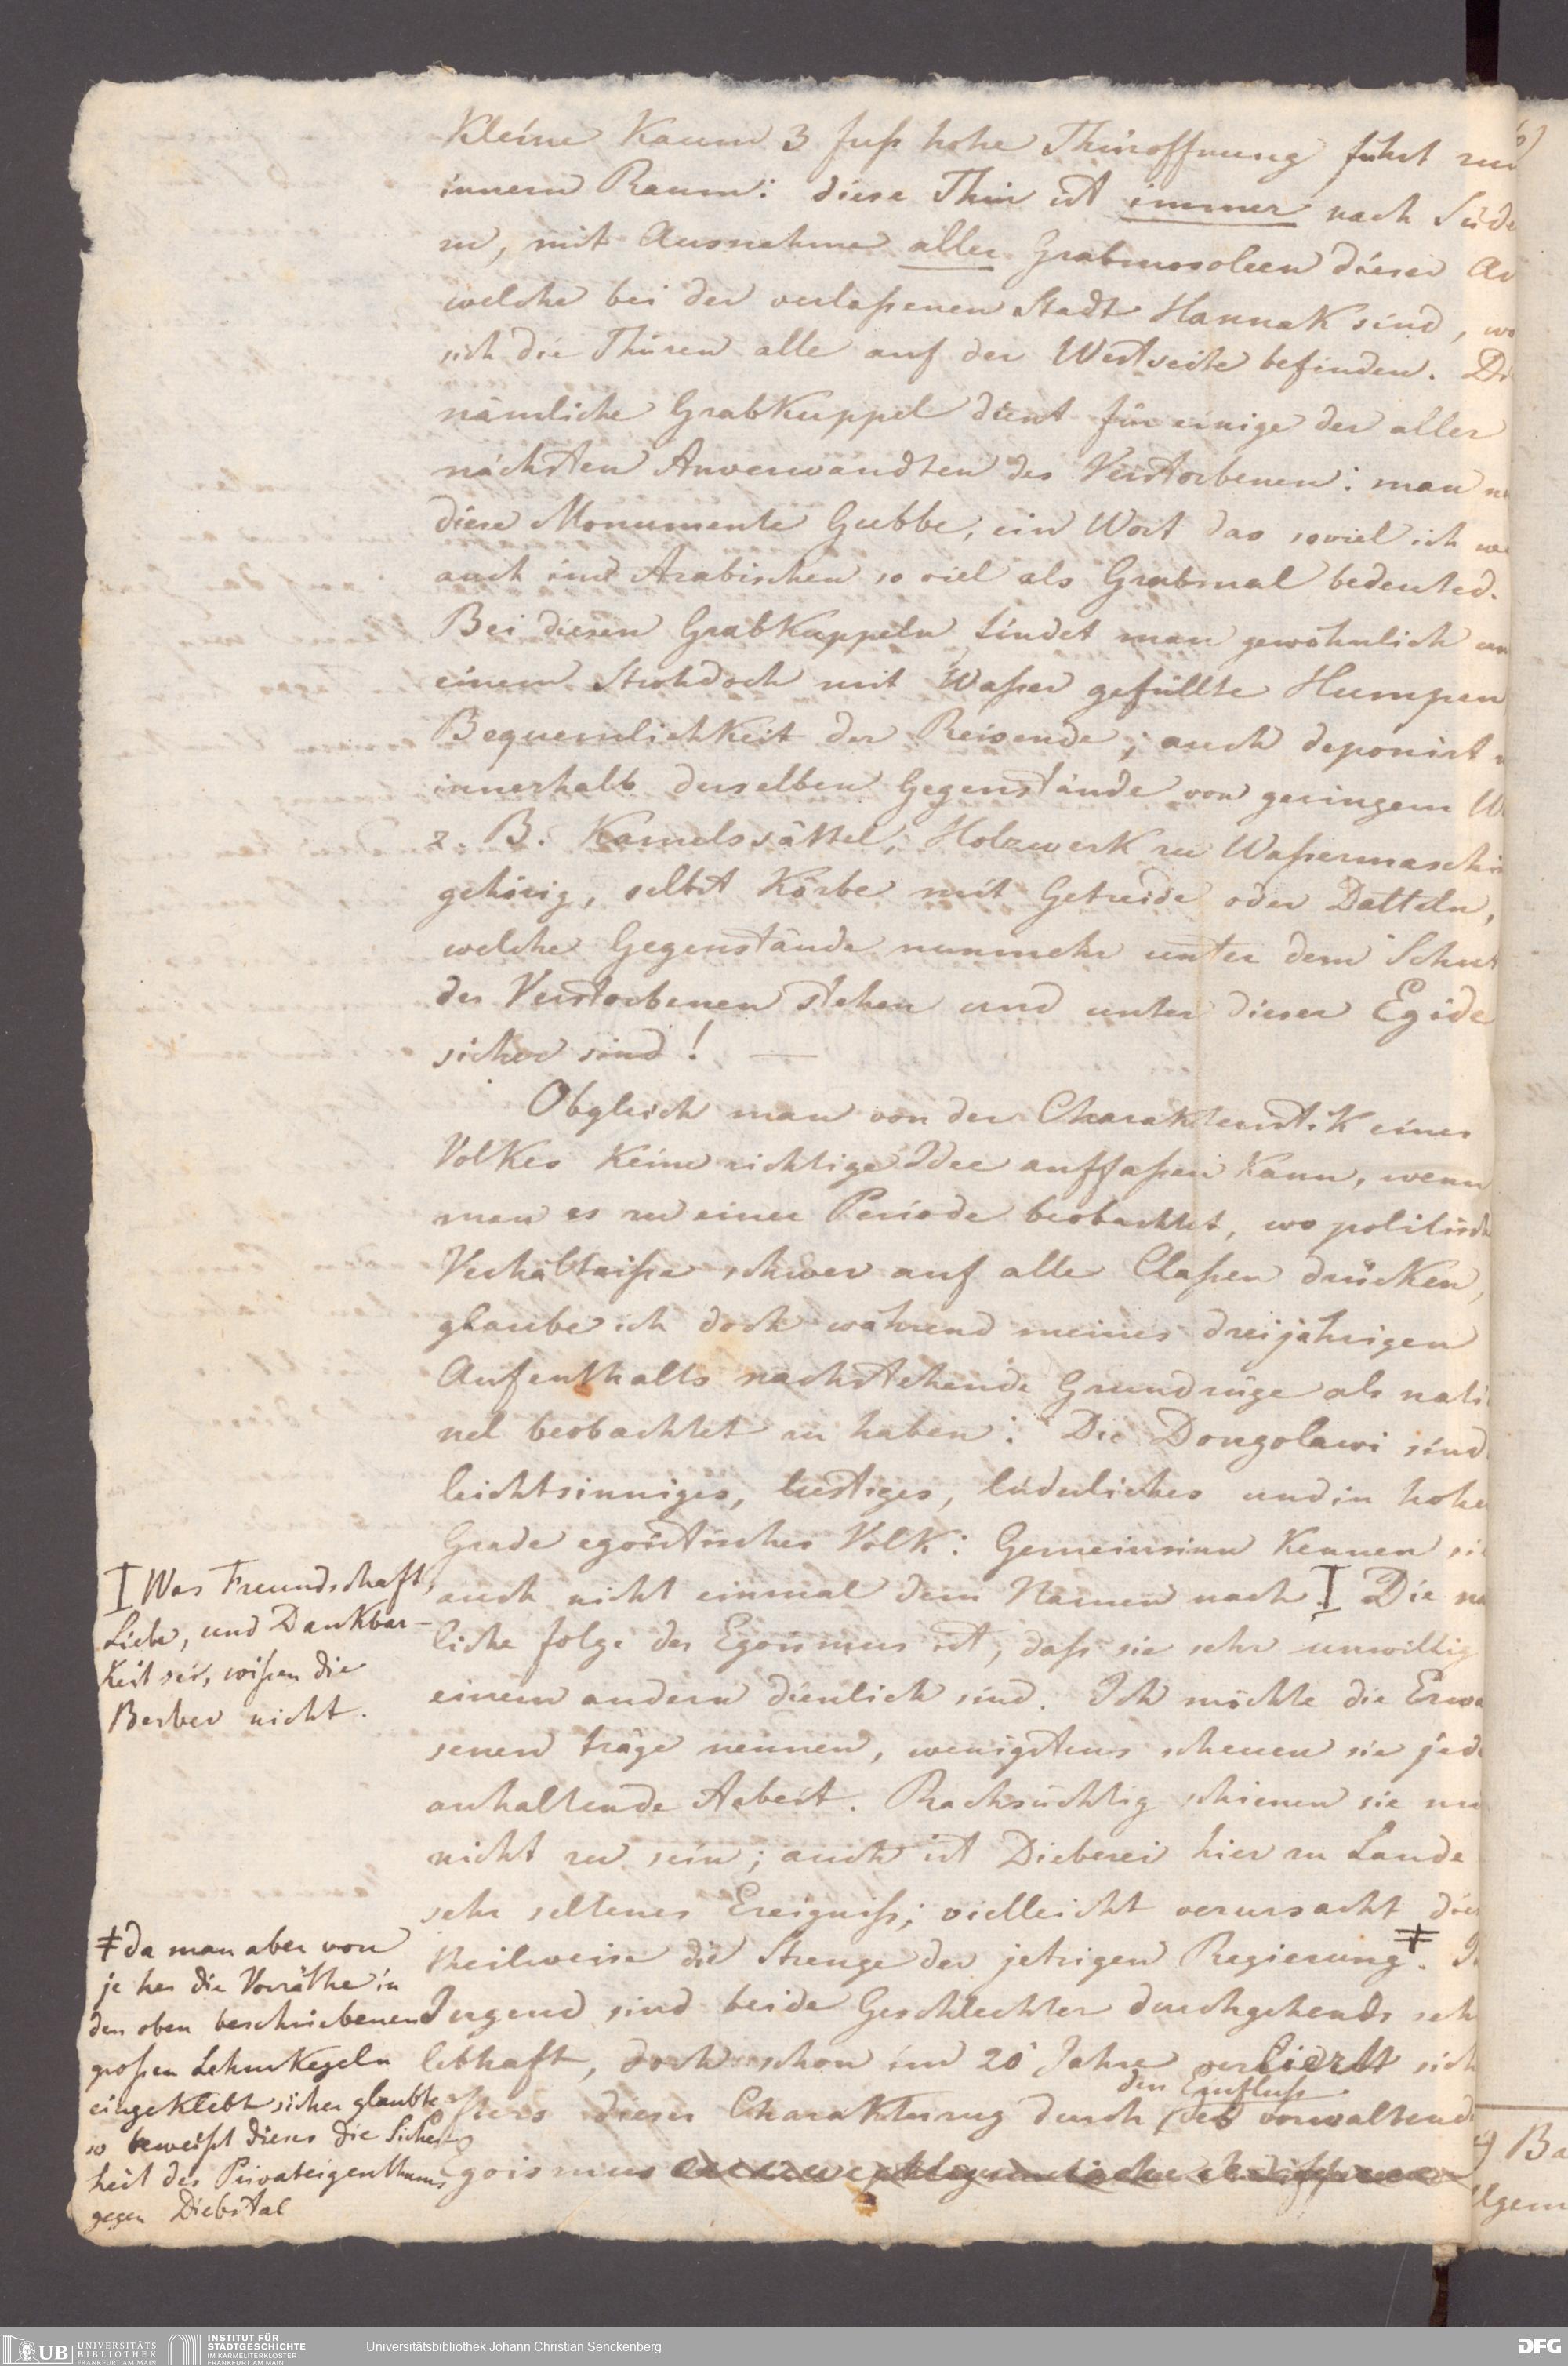 Kleine Kaum 3 fuß hohe Thüröffnung führt zum
innern Raum: diese Thür ist immer nach Süde
zu, mit Ausnahme aller Grabmosoleen dieser Ar
welche bei der verlaßenen Stadt HannaK sind, wo
sich die Thüren alle auf der Westseite befinden. Di
nämliche GrabKuppel dient für einige der aller
nächsten Anverwandten des Verstorbenen: man ne
diese Monumente Gubbe, ein Wort das soviel ich we
auch im Arabischen so viel als Grabmal bedeuted.
Bei diesen GrabKuppeln findet man gewöhnlich un
einem Strohdach mit Waßer gefüllte Humpen
BequemlichKeit der Reisende; auch deponirt
innerhalb derselben Gegenstände von geringem W
z. B. Kamelssättel, HolzwerK zu Waßermaschin
gehörig, selbst Körbe mit Getreide oder Datteln,
welche Gegenstände nunmehr unter dem Schut
des Verstorbenen stehen und unter dieser Egide
sicher sind! —
Obgleich man von der CharakteristiK eines
VolKes Keine richtige Idee auffaßen Kann, wenn
man es zu einer Periode beobachtet, wo politisch
Verhältniße schwer auf alle Claßen drücKen,
glaube ich doch während meines dreijährigen
Aufenthalts nachstehende Grundzüge als nati
nel beobachtet zu haben: Die Dongolawi sind
leichtsinniges, lustiges, lüderliches und in hohe
Grade egoistisches VolK: Gemeinsinn Kennen sie
auch nicht einmal dem Namen nach. I Die na
liche folge des Egoismus ist, daß sie sehr unwillig
einem andern dienlich sind. Ich möchte die Erwa
senen träge nennen, wenigstens scheuen sie jede
anhaltende Arbeit. Rachsüchtig schienen sie mir
nicht zu sein; auch ist Dieberei hier zu Lande
sehr seltenes Ereigniß; vielleicht verursacht dies
theilweise die Strenge der jetzigen Regierung ǂ. In
Jugend sind beide Geschlechter durchgehends seh
lebhaft, doch schon im 20 Jahre verliert sich
den Einfluß
öfters dieser Charakterzug durch des vorwaltend
Egoismus
I Was Freundschaft,
Liebe, und DanKbar-
Keit sei, wißen die
Berber nicht.
ǂ da man aber von
je her die Vorräthe in
den oben beschriebenen
großen LehmKegeln
eingeKlebt sicher glaubte
so beweißt dieses die Sicher-
heit des Privateigenthums
gegen Diebstal
4) Ba
llgem
UB UNIVERSITÄTS
BIBLIOTHEK
FRANKFURT AM MAIN
INSTITUT FÜR
STADTGESCHICHTE
IM KARMELITERKLOSTER
FRANKFURT AM MAIN
Universitätsbibliothek Johann Christian Senckenberg
DFG